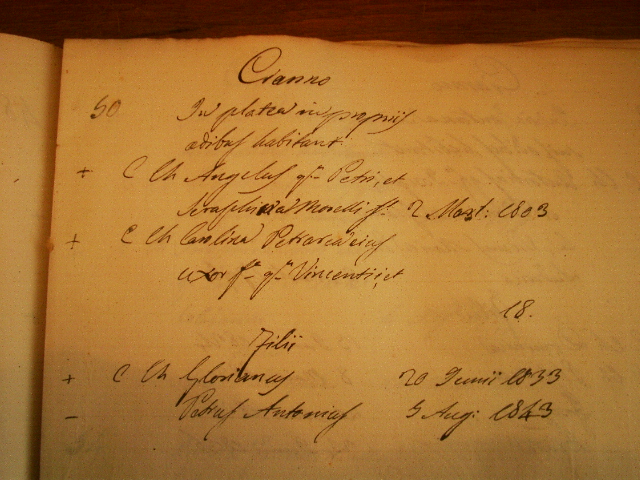 Cianno
50 In platea in propriis
ædibus habitant.
+ C Ch Angelus qm Petri, et
Seraphina Morelli fs. 2 Mart: 1803
+ C Ch Carolina Petrarca eius
uxor fa qm Vincentii, et
18.
Filii
+ C Ch Glorianus 20 Junii 1833
– Petrus Antonius 5 Aug: 1843